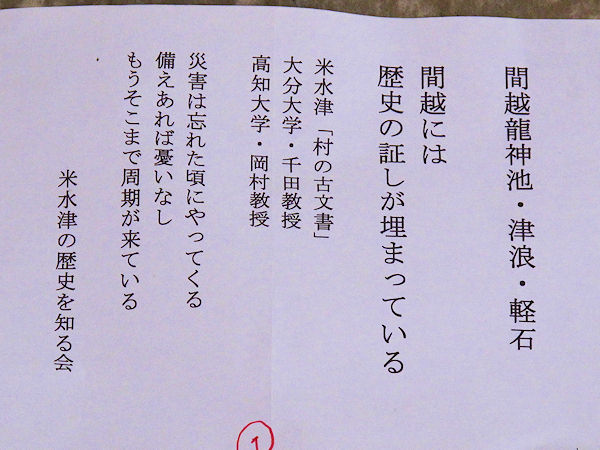 間越龍神池・津浪・軽石
間越には
歴史の証しが埋まっている
米水津「村の古文書」
大分大学・千田教授
高知大学・岡村教授
災害は忘れた頃にやってくる
備えあれば憂いなし
もうそこまで周期が来ている
米水津の歴史を知る会
1